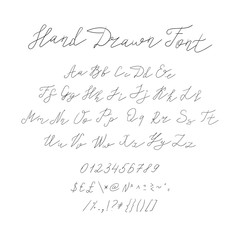 Hand Drawn Font
Aa Bb Cc Dd Ee
Ff Gg Hh Ii Jj Kk Ll
Mm Nn Oo Pp Qq Rr Ss Tt
Uu Vv Ww Xx Yy Zz
0123456789